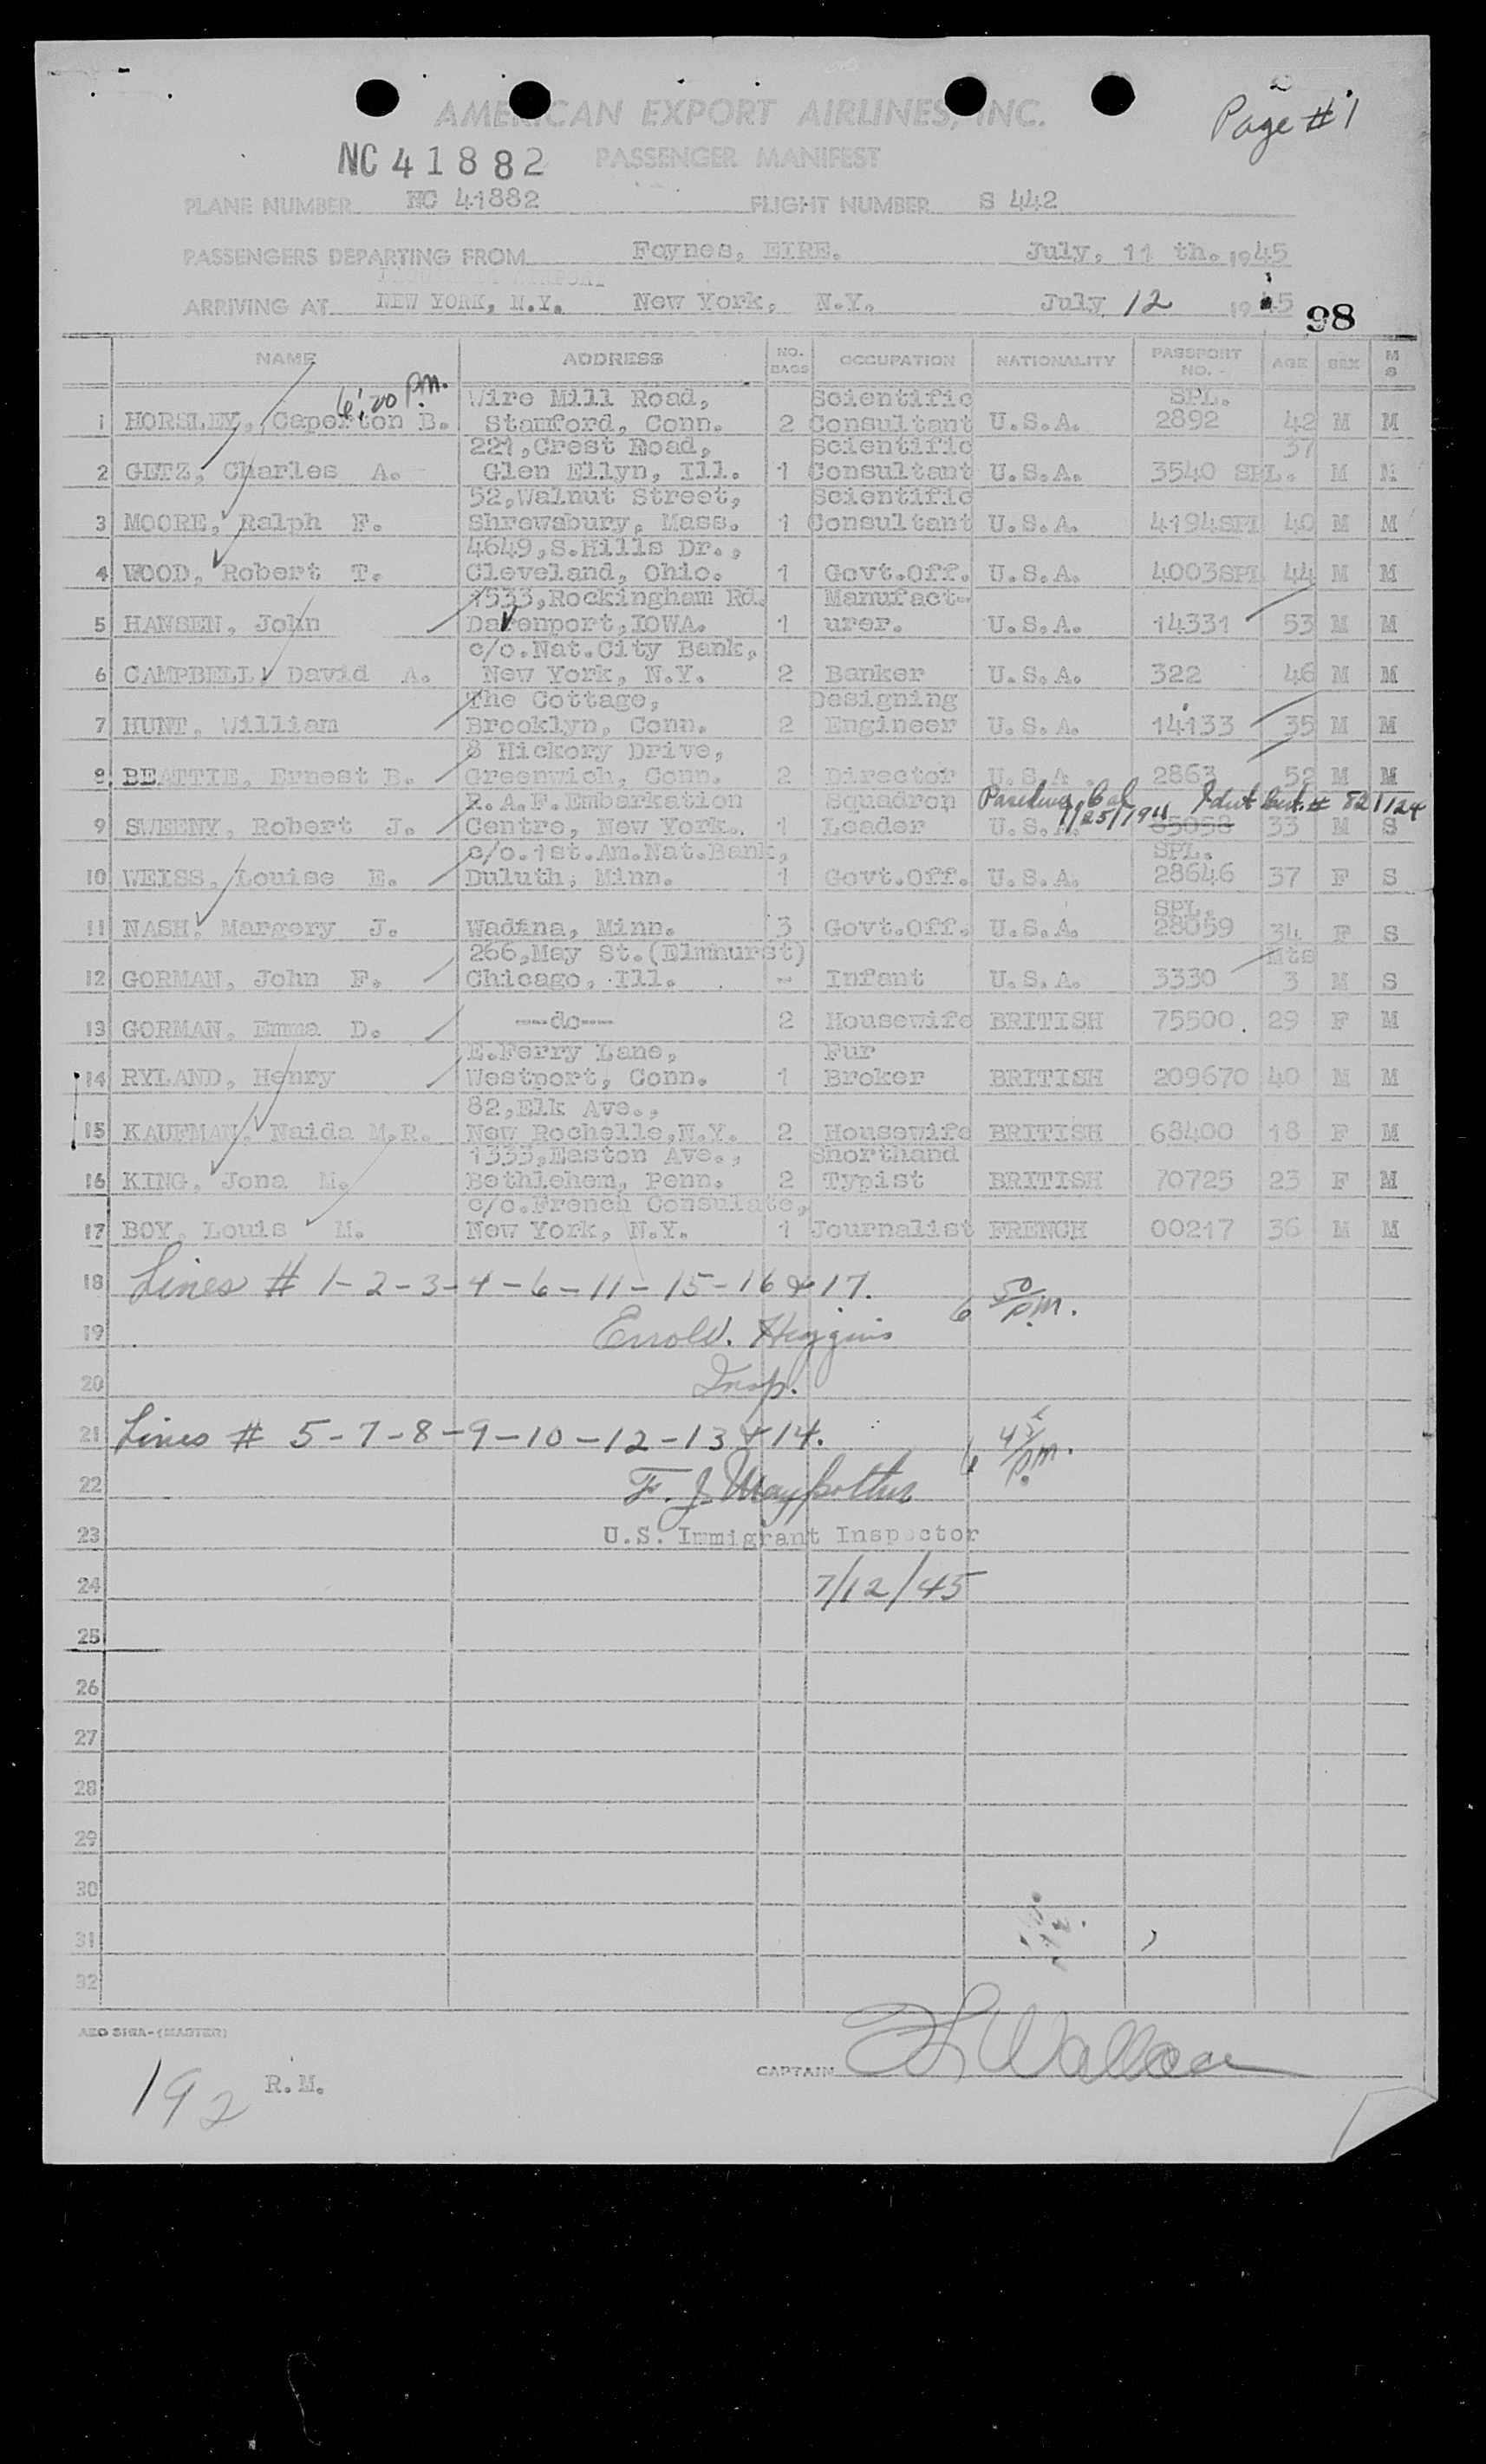 Page #1
AMERICAN EXPORT AIRLINES, INC.
NC 41882 PASSENGER MANIFEST
PLANE NUMBER NC 41882 FLIGHT NUMBER S 442
PASSENGERS DEPARTING FROM Foynes, EIRE. July, 11 th. 1945
ARRIVING AT NEW YORK, N.Y. New York, N.Y. July 12 1945
98
NAME ADDRESS NO. BAGS OCCUPATION NATIONALITY PASSPORT NO. AGE SEX M S
6:00 P.M. Wire Mill Road, Scientific SPL.
1 HORSLEY, Caperton B. Stamford, Conn. 2 Consultant U.S.A. 2892 42 M M
221,Crest Road, Scientific 37
2 GETZ, Charles A. Glen Ellyn, Ill. 1 Consultant U.S.A. 3540 SPL. M M
52,Walnut Street, Scientific
3 MOORE, Ralph F. Shrewsbury, Mass. 1 Consultant U.S.A. 4194SPL 40 M M
4649,S.Hills Dr.,
4 WOOD, Robert T. Cleveland, Ohio. 1 Govt.Off. U.S.A. 4003SPL 44 M M
1533,Rockingham Rd. Manufact-
5 HANSEN, John Davenport,IOWA. 1 urer. U.S.A. 14331 53 M M
c/o.Nat.City Bank,
6 CAMPBELL, David A. New York, N.Y. 2 Banker U.S.A. 322 46 M M
The Cottage, Designing
7 HUNT, William Brooklyn, Conn. 2 Engineer U.S.A. 14133 35 M M
8 Hickory Drive,
8 BEATTIE, Ernest B. Greenwich, Conn. 2 Director U.S.A. 2863 52 M M
R.A.F.Embarkation Squadron Pasadena, Cal Ident Cert. # 821124
9 SWEENY, Robert J. Centre, New York. 1 Leader U.S.A. 7/25/1911 85058 33 M S
c/o.1st.Am.Nat.Bank, SPL.
10 WEISS, Louise E. Duluth, Minn. 1 Govt.Off. U.S.A. 28646 37 F S
SPL.
11 NASH, Margery J. Wadena, Minn. 3 Govt.Off. U.S.A. 28059 34 F S
266,May St.(Elmhurst) mts
12 GORMAN, John F. Chicago, Ill. - Infant U.S.A. 3330 3 M S
13 GORMAN, Emma D. --do-- 2 Housewife BRITISH 75500. 29 F M
E.Ferry Lane, Fur
14 RYLAND, Henry Westport, Conn. 1 Broker BRITISH 209670 40 M M
82,Elk Ave.,
15 KAUFMAN, Naida M.R. New Rochelle,N.Y. 2 Housewife BRITISH 68400 18 F M
1333,Easton Ave., Shorthand
16 KING, Jona M. Bethlehem, Penn. 2 Typist BRITISH 70725 23 F M
c/o.French Consulate,
17 BOY, Louis M. New York, N.Y. 1 Journalist FRENCH 00217 36 M M
18 Lines # 1-2-3-4-6-11-15-16 & 17. 6 50 P.M.
19 Errol V. Higgins
20 Insp.
21 Lines # 5-7-8-9-10-12-13 & 14. 6 45 P.M.
22
23 U.S. Immigrant Inspector
24 7/12/45
25
26
27
28
29
30
31
32
CAPTAIN Wallace
192 R.M.